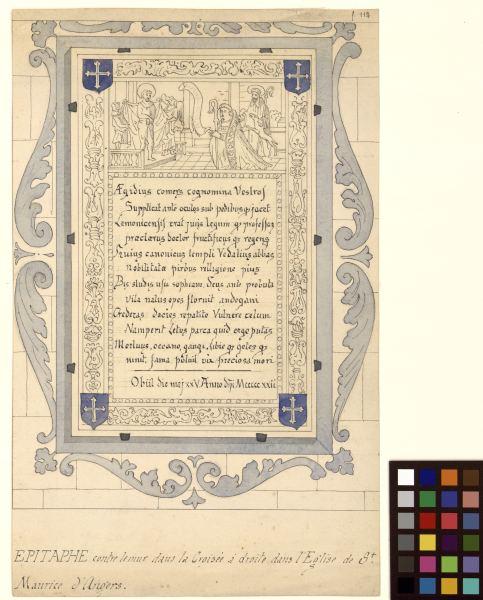 f. 113
Ægidius comers cognomina Vestros
Supplicat ante oculos sub pedibus qz jacet
Lemonicensis erat juris legum qz professor
præclarus doctor fructificus qz regens
Huius canonicus templi Vedatius abbas
nobilitate pirbus relligione pius
Bis studis usu sophiam, Deus ante probata
vila natus opes floruit andegani
Crederas docies repatito Vulnere celum
Namperit Letus parca quid ergo putas
Mortuus, occeano, gangi, sibio qz getes qz
ninit, fama potuit vix preciosa mori
Obiit die maj xxV Anno dñi Mccccc xxii
EPITAPHE contre le mur dans la Croisée à droite dans l'Eglise de St
Maurice d'Angers.